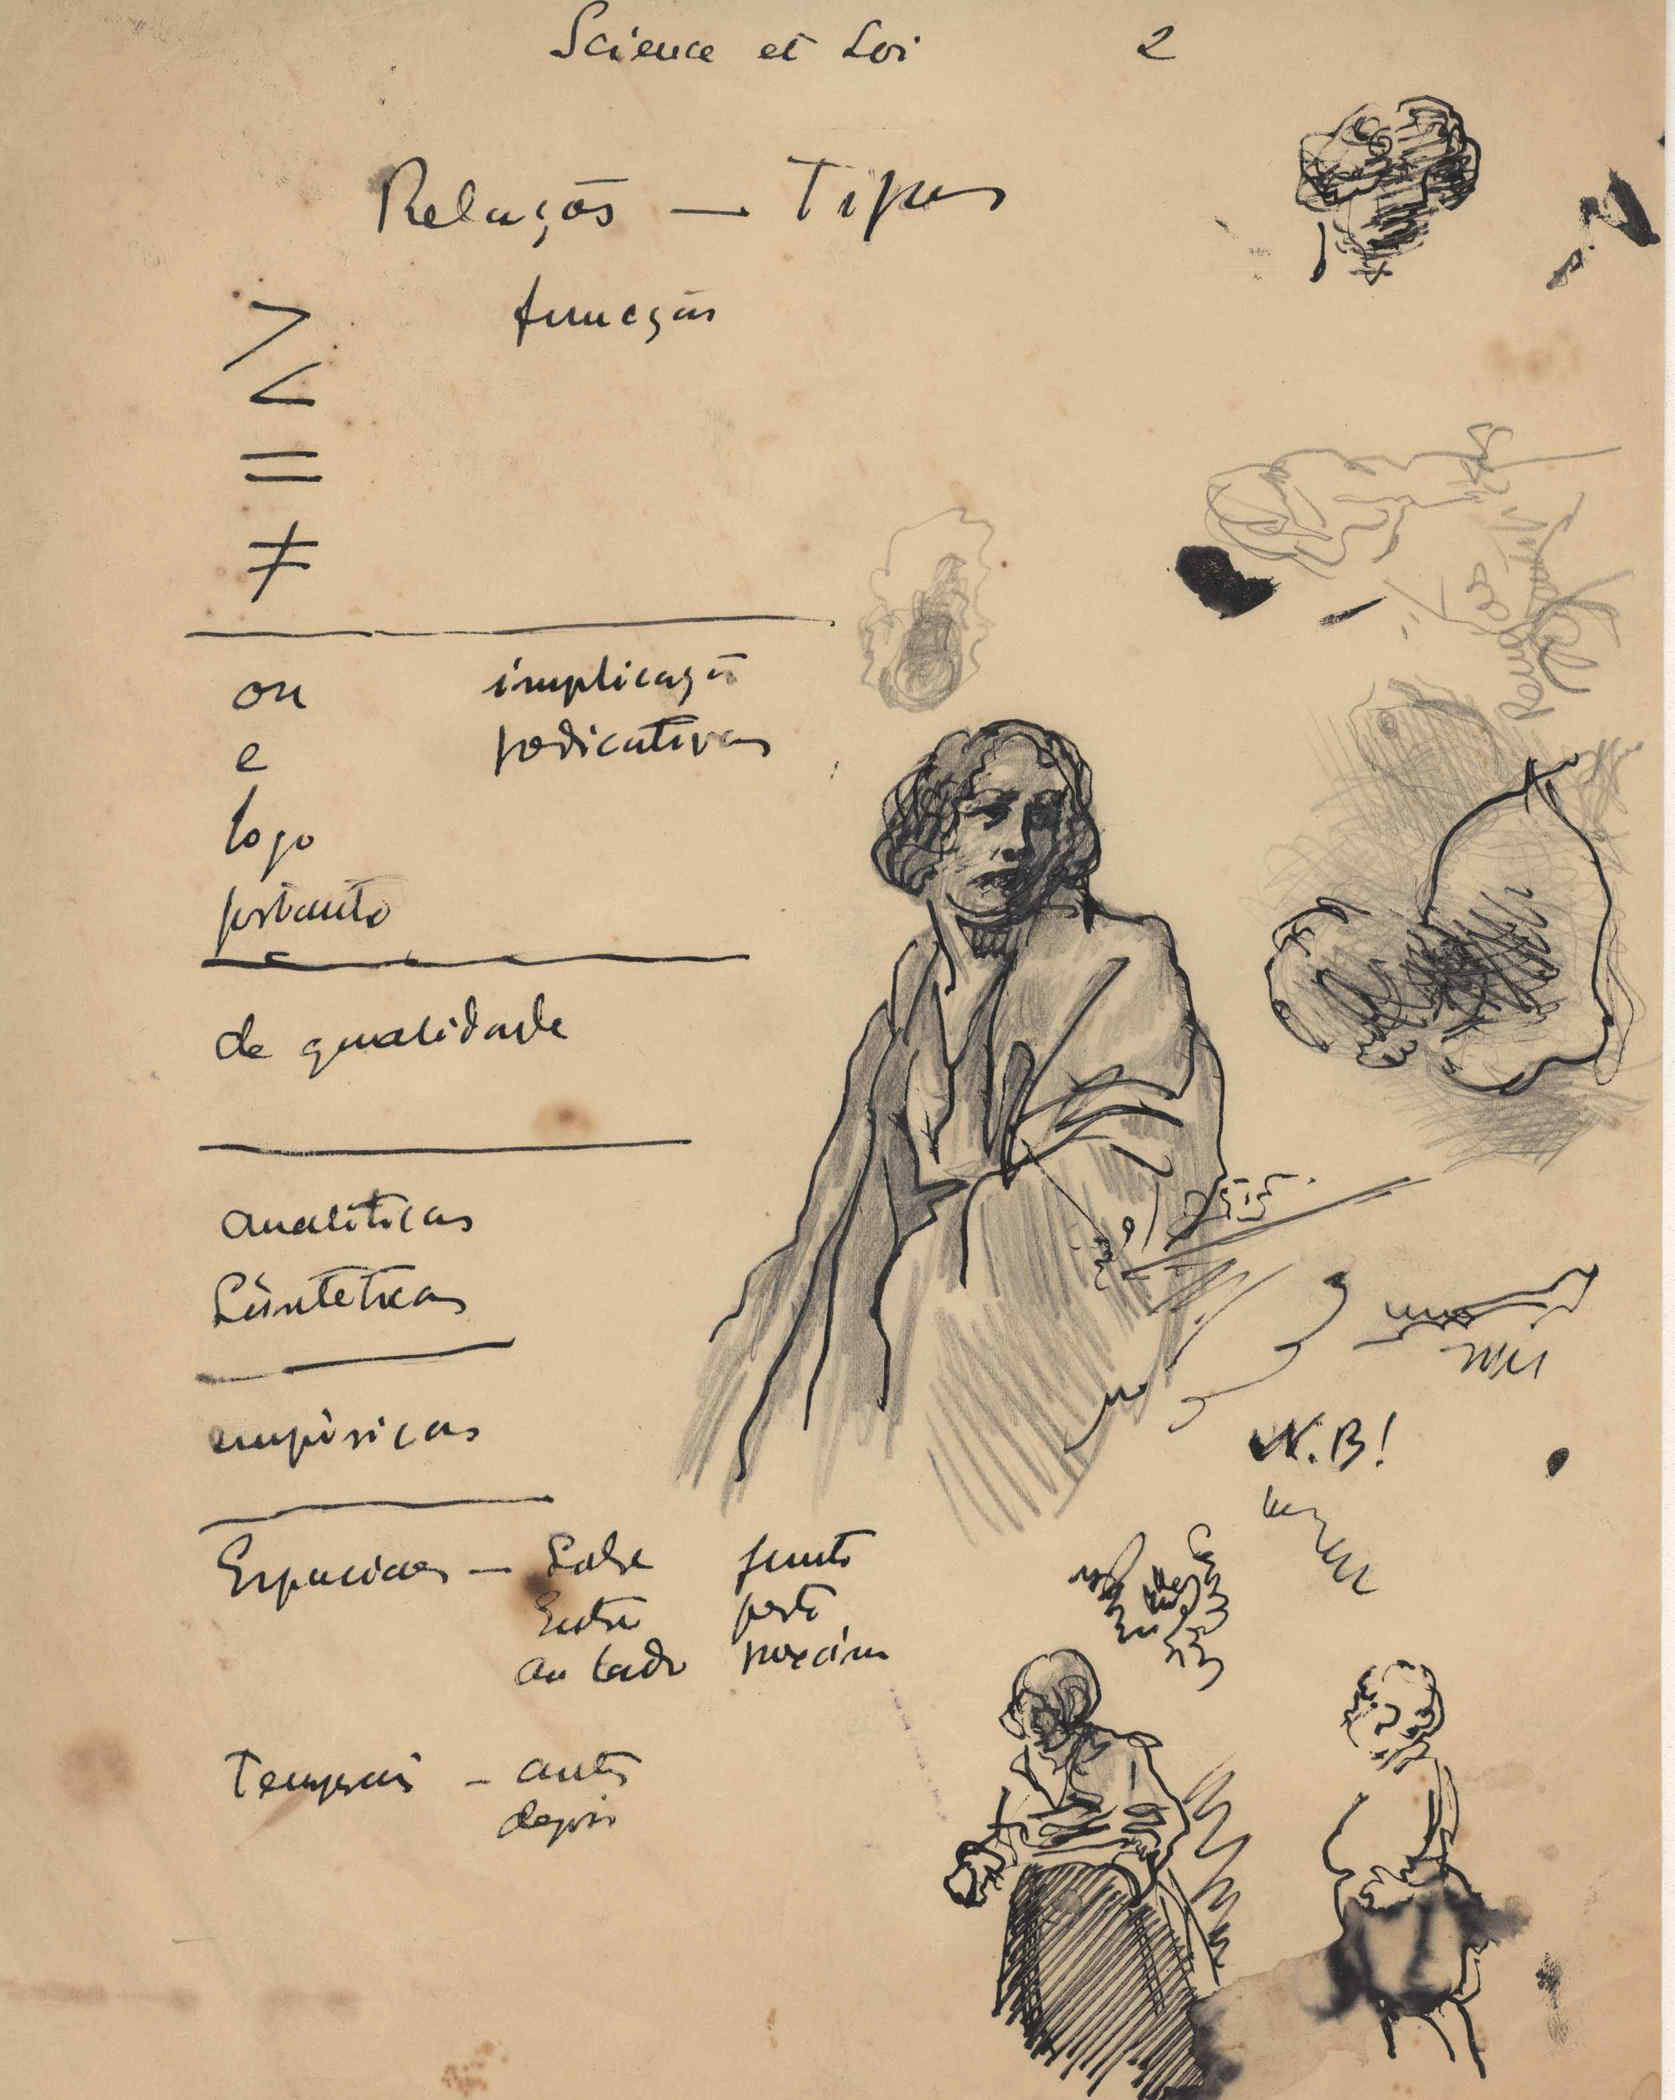 Science et Loi 2
Relações — Tipos
função
>
<
=
≠
ou implicação
e predicativas
logo
portanto
de qualidade
analíticas
Sintéticas
empíricas
Espaciais — Sobre junto
Entre perto
ao lado
Temporais — antes
depois
N.B!